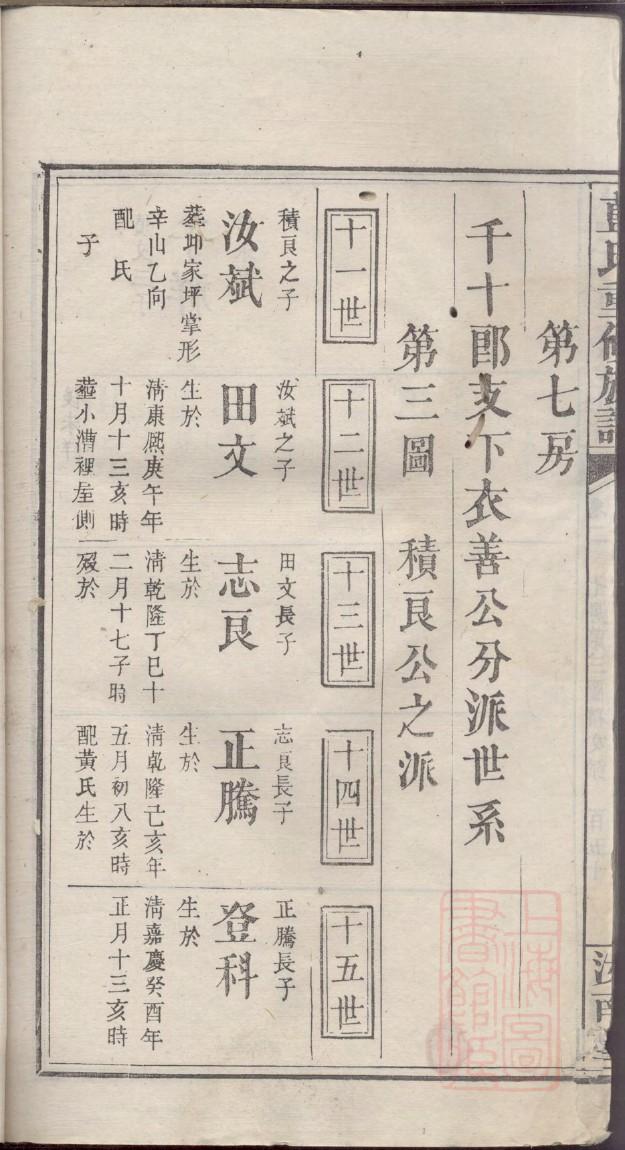 藍氏重修族譜
汝南堂
第七房
千十郎支下衣善公分派世系
第三圖 積良公之派
十一世
積良之子
汝斌
葬坤家坪掌形
辛山乙向
配氏
子
十二世
汝斌之子
田文
生於
淸康熈庚午年
十月十三亥時
葬小漕裡屋側
十三世
田文長子
志良
生於
淸乾隆丁巳十
二月十七子時
歿於
十四世
志良長子
正騰
生於
淸乾隆己亥年
五月初八亥時
配黃氏生於
十五世
正騰長子
登科
生於
淸嘉慶癸酉年
正月十三亥時
上海圖書館藏